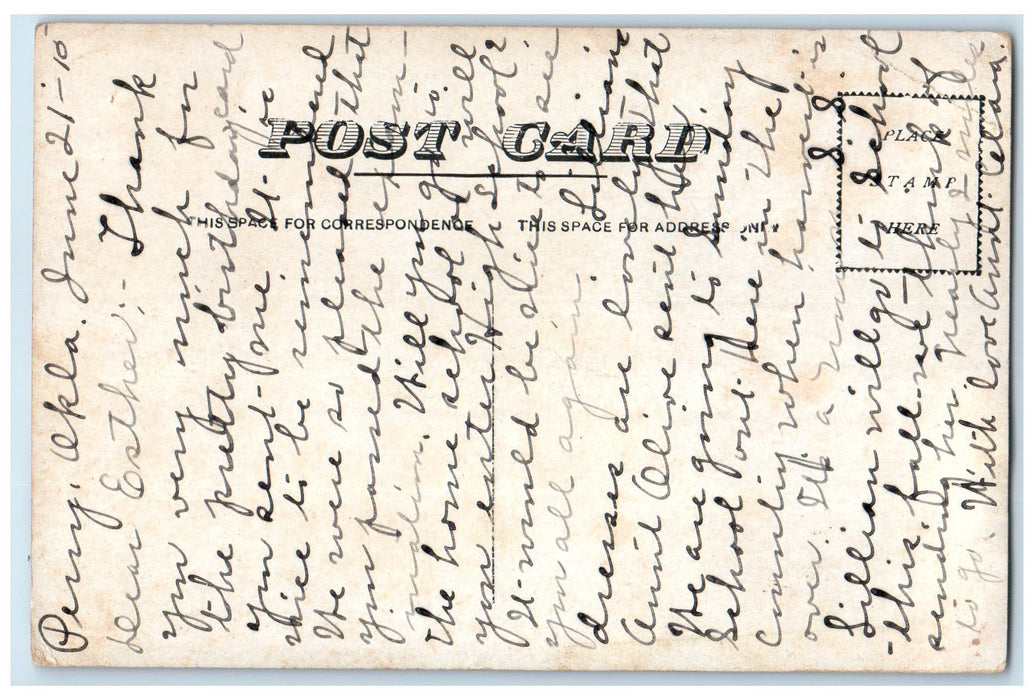 POST CARD
THIS SPACE FOR CORRESPONDENCE
THIS SPACE FOR ADDRESS ONLY
PLACE
STAMP
HERE
Perry, Okla. June 21-10
Dear Esther:-
Thank
you very much for
the pretty birthday card
you sent me. It is
nice to be remembered
We were so pleased that
you passed the exam-
ination. Will you go to
the home school or will
you enter High School?
It would be nice to see
you all again.
Lillian's
dresses are lovely that
Aunt Olive sent her
We are going to Sunday
School out here in the
country when harvest is
over. It's a Union S. S.
Lillian will go to School
this fall - we think of
sending her nearly 2 miles
to go. With love Aunt Clara.